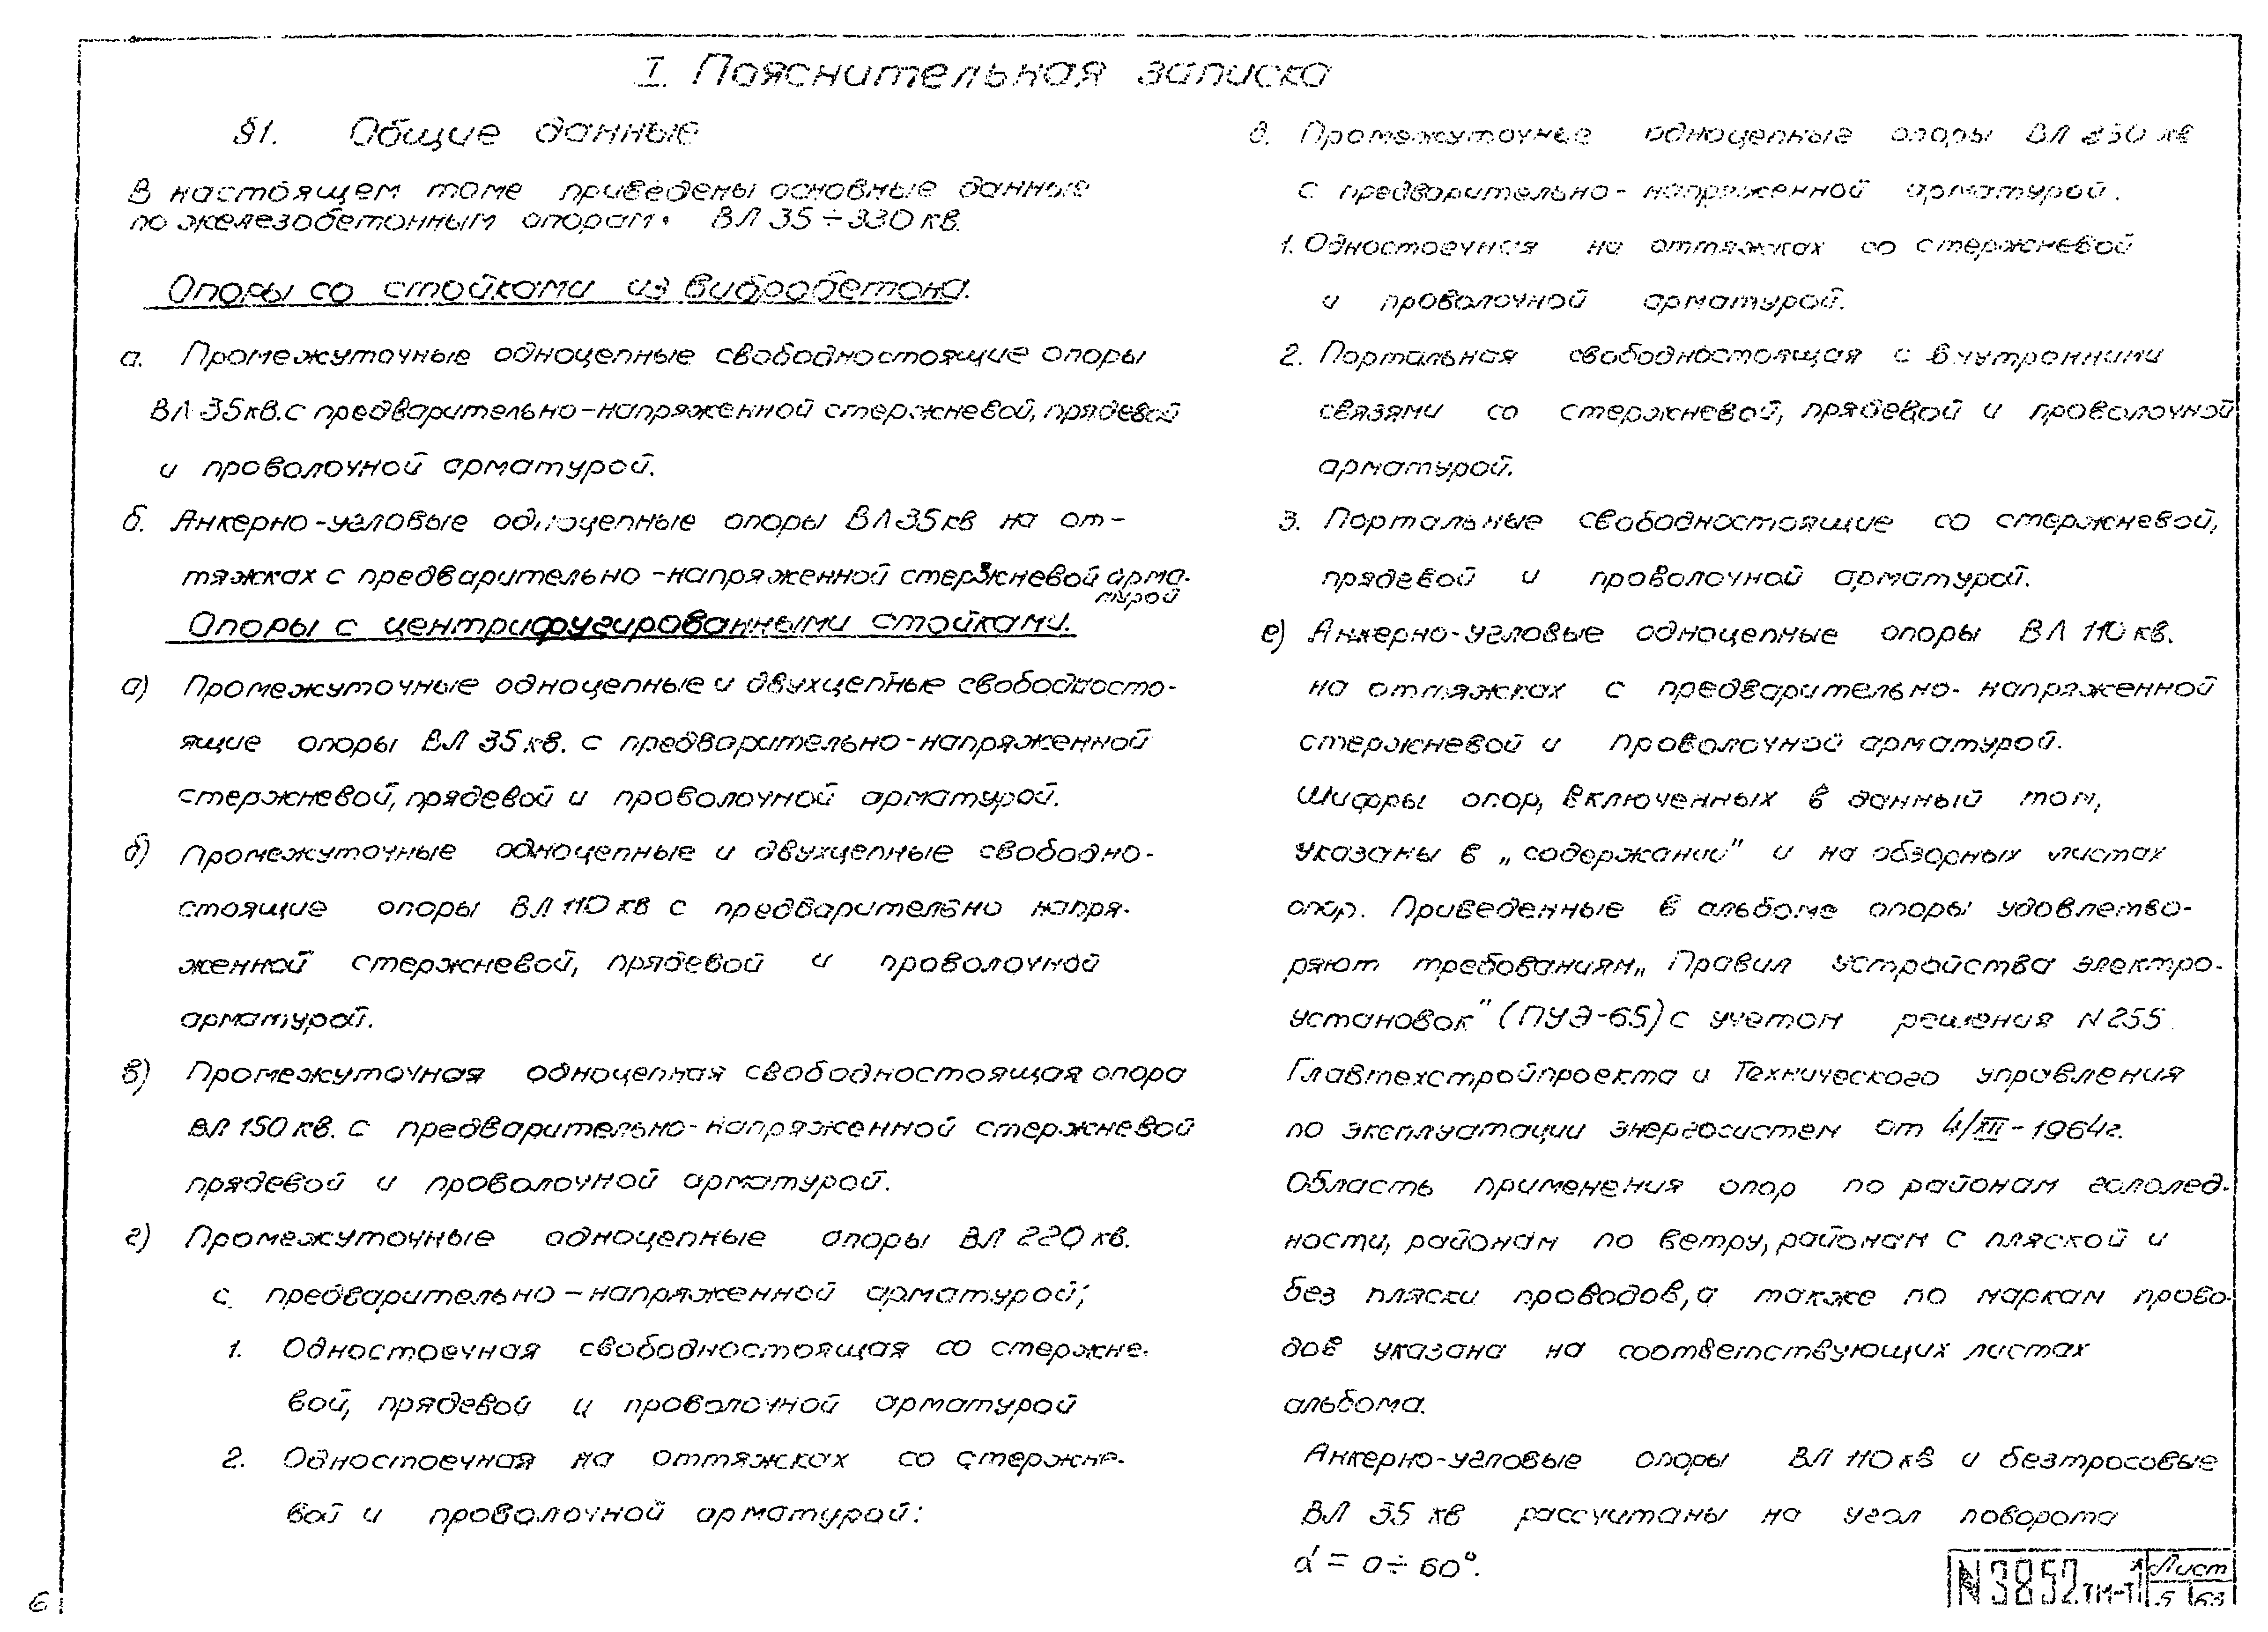 I. Пояснительная записка
§1. Общие данные
В настоящем томе приведены основные данные
по железобетонным опорам. ВЛ 35÷330 кв.
Опоры со стойками из вибробетона.
а. Промежуточные одноцепные свободностоящие опоры
ВЛ 35кв. с предварительно-напряженной стержневой, прядевой
и проволочной арматурой.
б. Анкерно-угловые одноцепные опоры ВЛ 35кв на от-
тяжках с предварительно-напряженной стержневой арма-
турой
Опоры с центрифугированными стойками.
а) Промежуточные одноцепные и двухцепные свободносто-
ящие опоры ВЛ 35кв. с предварительно-напряженной
стержневой, прядевой и проволочной арматурой.
б) Промежуточные одноцепные и двухцепные свободно-
стоящие опоры ВЛ 110 кв с предварительно напря-
женной стержневой, прядевой и проволочной
арматурой.
в) Промежуточная одноцепная свободностоящая опора
ВЛ 150 кв. с предварительно-напряженной стержневой
прядевой и проволочной арматурой.
г) Промежуточные одноцепные опоры ВЛ 220 кв.
с предварительно-напряженной арматурой;
1. Одностоечная свободностоящая со стержне-
вой, прядевой и проволочной арматурой
2. Одностоечная на оттяжках со стержне-
вой и проволочной арматурой:
д. Промежуточные одноцепные опоры ВЛ 330 кв
с предварительно-напряженной арматурой.
1. Одностоечная на оттяжках со стержневой
и проволочной арматурой.
2. Портальная свободностоящая с внутренними
связями со стержневой, прядевой и проволочной
арматурой.
3. Портальные свободностоящие со стержневой,
прядевой и проволочной арматурой.
е) Анкерно-угловые одноцепные опоры ВЛ 110 кв.
на оттяжках с предварительно-напряженной
стержневой и проволочной арматурой.
Шифры опор, включенных в данный том,
указаны в „содержании" и на обзорных листах
опор. Приведенные в альбоме опоры удовлетво-
ряют требованиям „Правил устройства электро-
установок" (ПУЭ-65) с учетом решения N 255
Главтехстройпроекта и Технического управления
по эксплуатации энергосистем от 4/XII-1964г.
Область применения опор по районам гололед-
ности, районам по ветру, районам с пляской и
без пляски проводов, а также по маркам прово-
дов указана на соответствующих листах
альбома.
Анкерно-угловые опоры ВЛ 110 кв и безтросовые
ВЛ 35 кв рассчитаны на угол поворота
α = 0÷60°.
N3852тм-т1 Лист
5 63
6